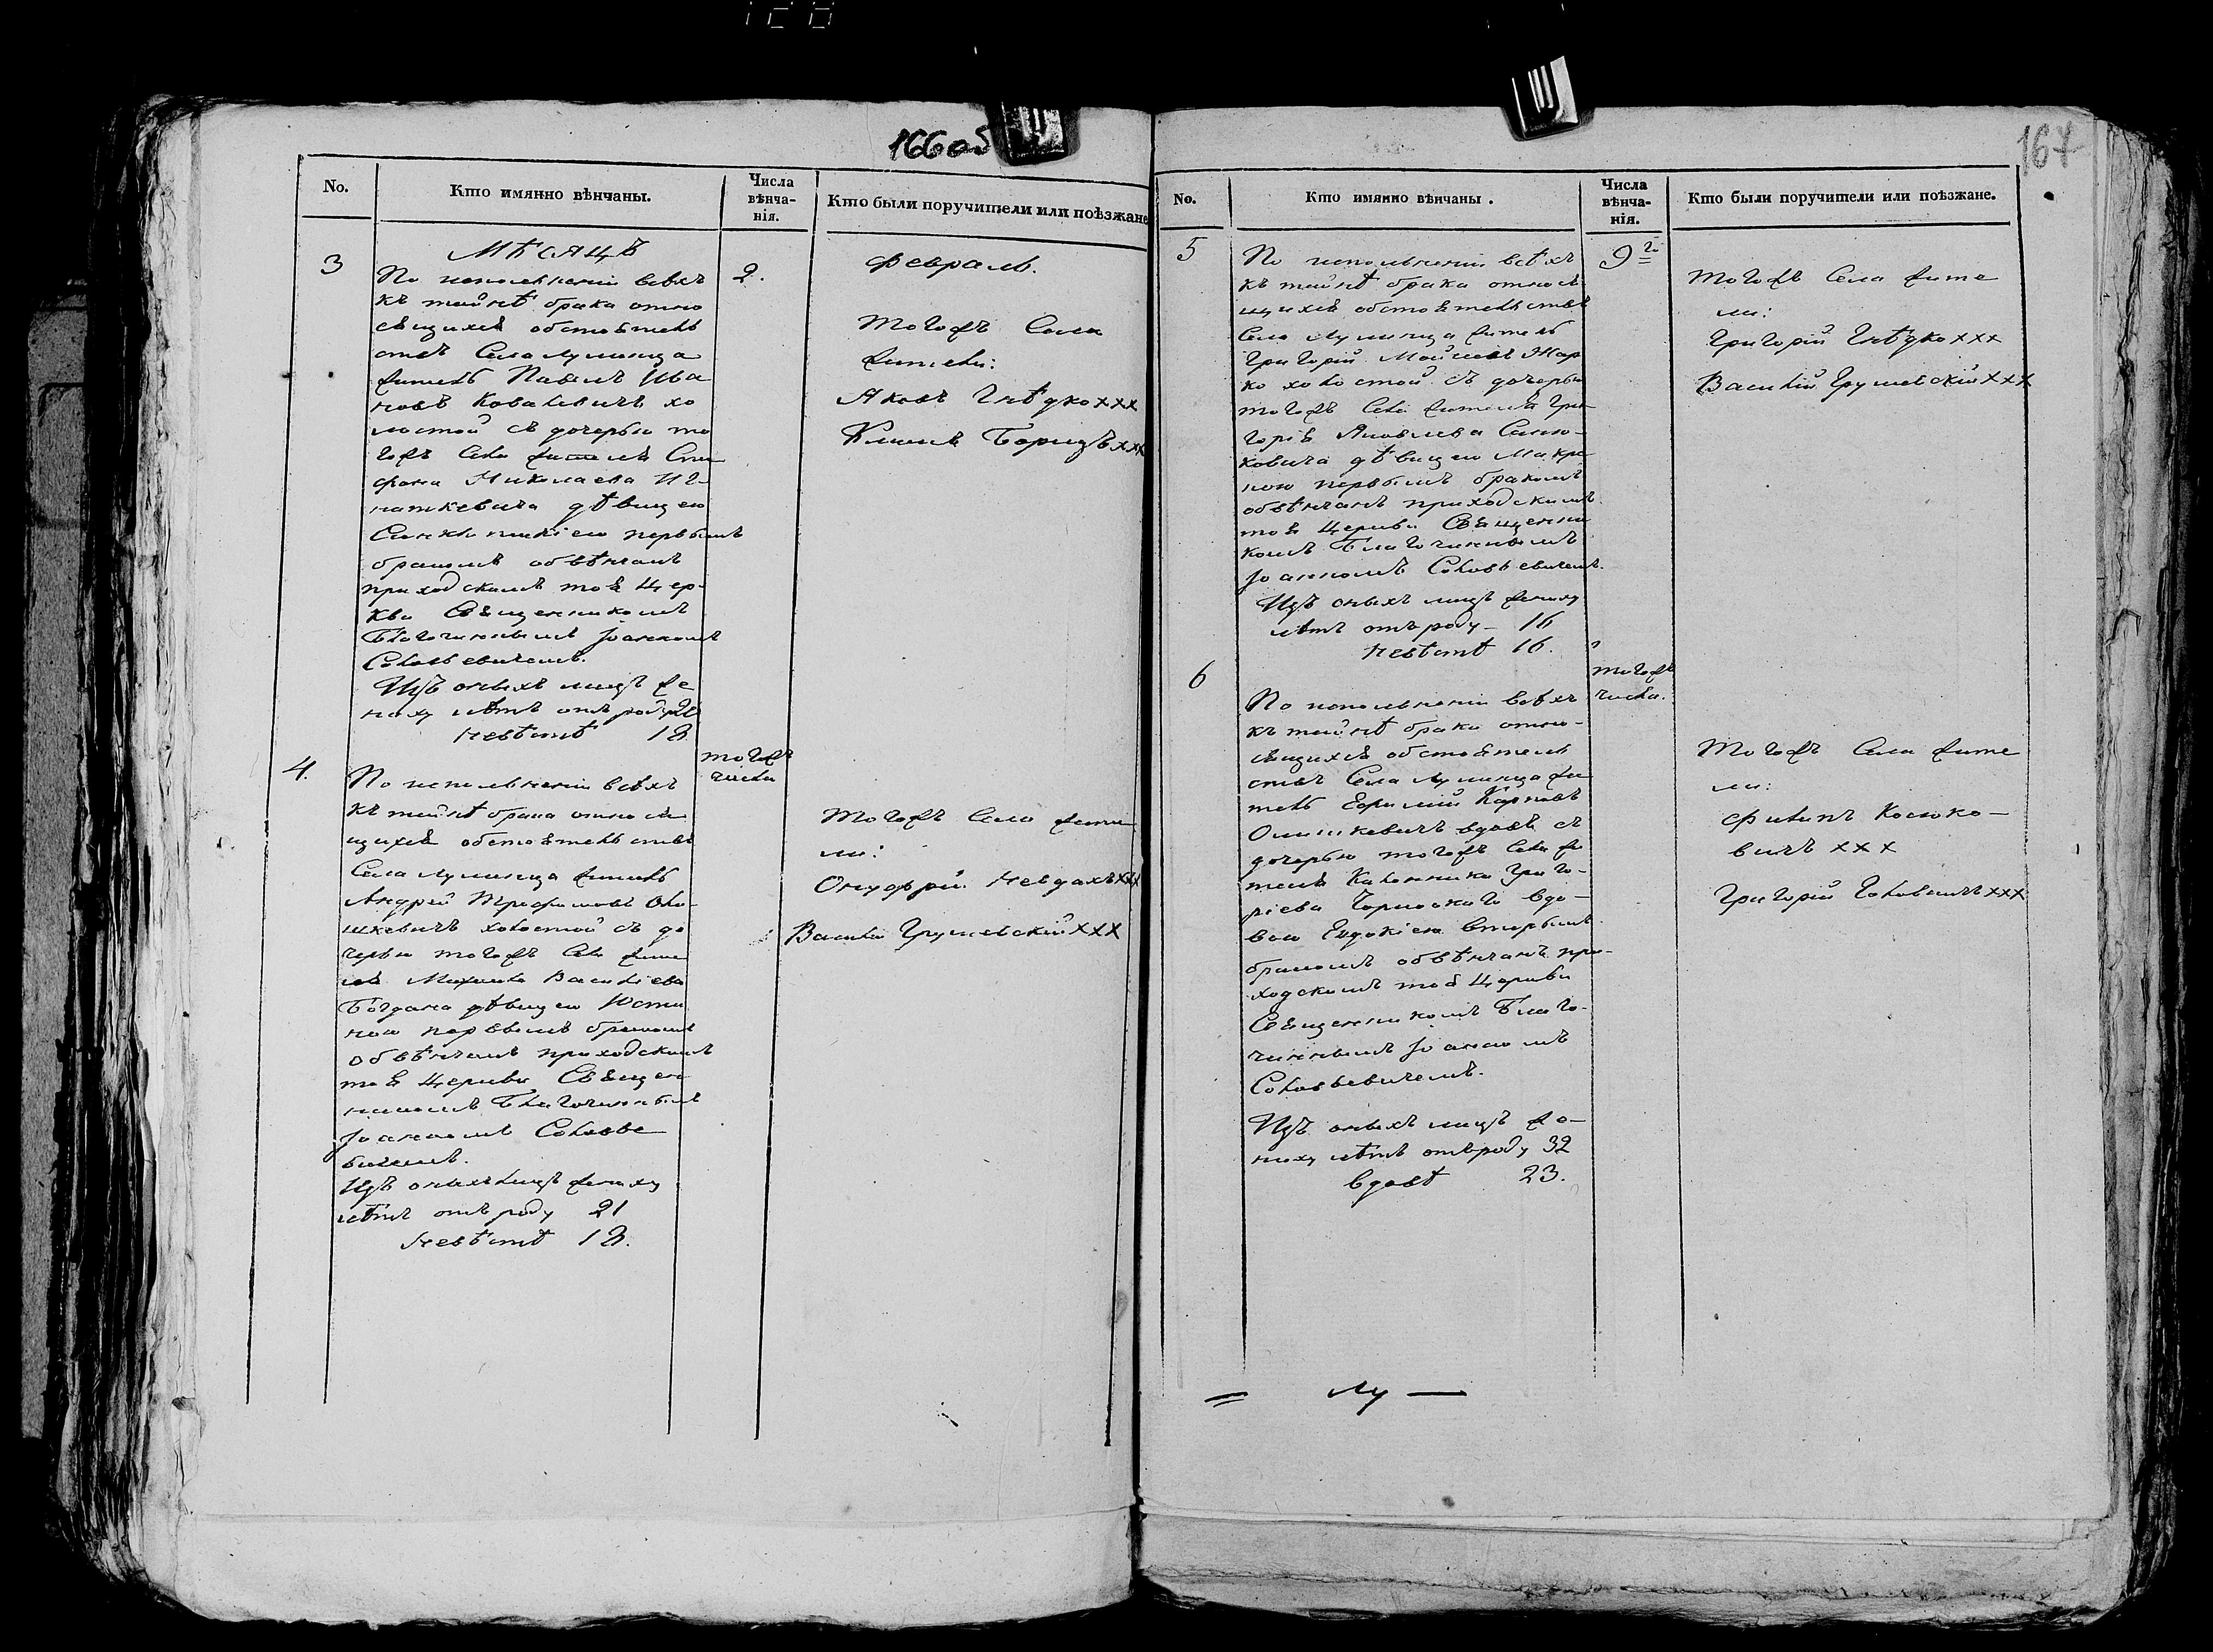 166об
No.
Кто имянно вѣнчаны.
Числа
вѣнча-
нія.
Кто были поручители или поѣзжане
Мѣсяцъ
февраль.
3
По исполненіи всѣхъ
къ тайнѣ брака отно
сящихся обстоятель
ствъ Села Лунинца
житель Павелъ Ива
новъ Ковалевичъ хо
лостой съ дочерью то
гожъ Села жителя Сте
фана Николаева Иг-
наткевича дѣвицею
первымъ
бракомъ обвѣнчанъ
приходскимъ тоя Цер-
кви Священникомъ
Благочиннымъ Іоанномъ
Соловьевичемъ.
Изъ оныхъ лицъ же
ниху лѣтъ отъ роду 21
невѣстѣ 18
2.
Тогожъ Села
жители:
Яковъ Гнѣдко xxx
Климъ Борицъ xxx
4.
По исполненіи всѣхъ
къ тайнѣ брака относя
щихся обстоятельствъ
Села Лунинца житель
Андрей Трофимовъ Оли-
шкевичъ холостой съ до
черью тогожъ Села жите
ля Михаила Василіева
Богдана дѣвицею Юсти
ною первымъ бракомъ
обвѣнчанъ приходскимъ
тоя Церкви Священ
никомъ Благочиннымъ
Іоанномъ Соловье
вичемъ.
Изъ оныхъ лицъ жениху
лѣтъ отъ роду 21
невѣстѣ 18.
тогожъ
числа
Тогожъ Села жите
ли:
Онуфрій Невдахъ xxx
Василій Грушевскій xxx
167
No.
Кто имянно вѣнчаны .
Числа
вѣнча-
нія.
Кто были поручители или поѣзжане.
5
По исполненіи всѣхъ
къ тайнѣ брака относя
щихся обстоятельствъ
Села Лунинца житель
Григорій Мойсіевъ Жар
ко холостой съ дочерью
тогожъ Села жителя Гри-
горія Яковлева Синю-
ковича дѣвицею Макри
ною первымъ бракомъ
обвѣнчанъ приходскимъ
тоя Церкви Священни
комъ Благочиннымъ
Іоанномъ Соловьевичемъ.
Изъ оныхъ лицъ жениху
лѣтъ отъ роду - 16
невѣстѣ 16.
9го
Тогожъ Села жите
ли:
Григорій Гнѣдко xxx
Василій Грушевскій xxx
6
По исполненіи всѣхъ
къ тайнѣ брака отно-
сящихся обстоятель
ствъ Села Лунинца жи
тель Ефимій Карповъ
Олишкевичъ вдовъ съ
дочерью тогожъ Села жи
теля Калинника Григо-
ріева Чорноокаго вдо-
вою Евдокіею вторымъ
бракомъ обвѣнчанъ при-
ходскимъ тоя Церкви
Священникомъ Благо-
чиннымъ Іоанномъ
Соловьевичемъ.
Изъ оныхъ лицъ же-
ниху лѣтъ отъ роду 32
вдовѣ 23.
тогожъ
числа.
Тогожъ Села жите
ли:
Филипъ Косюко-
вичъ xxx
Григорій Головачъ xxx
= Лу —